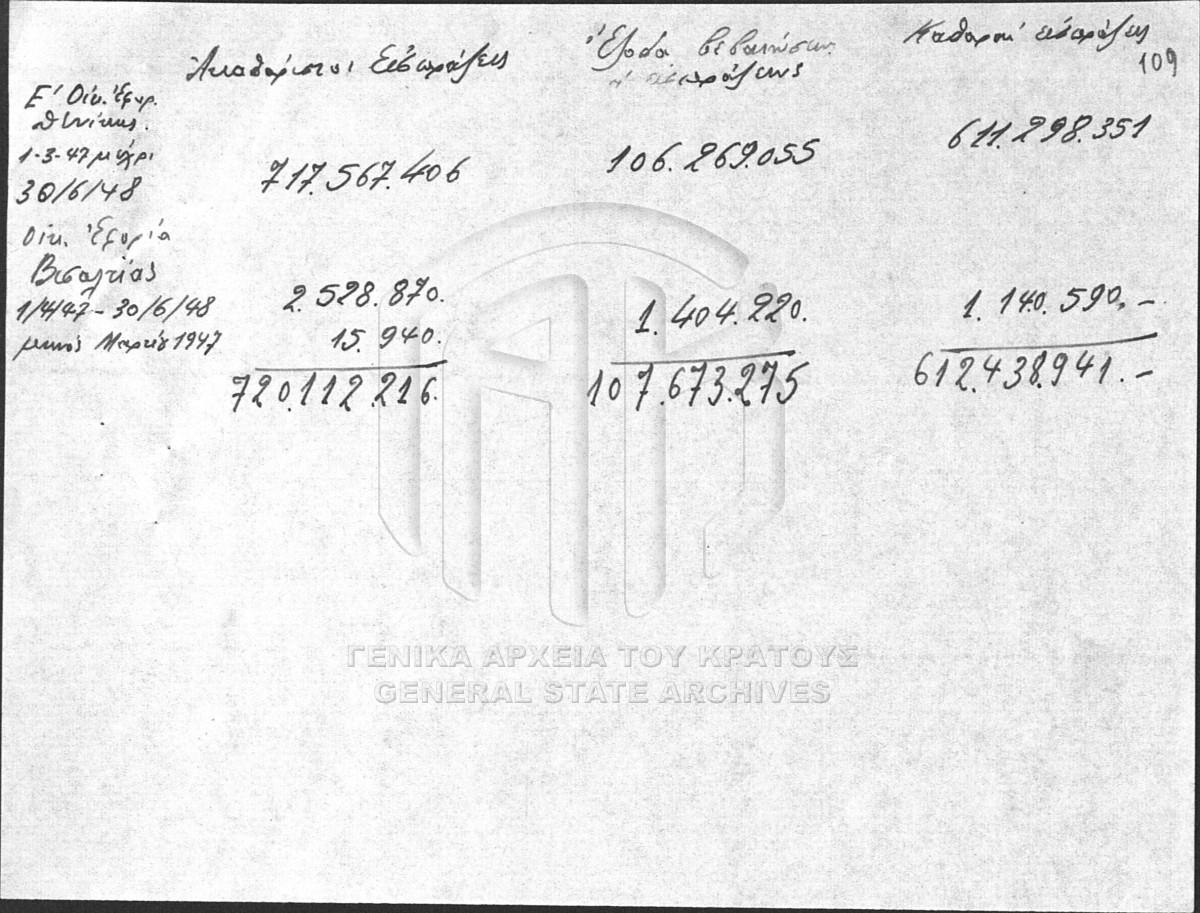 Ἀκαθάριστοι Εἰσπράξεις
Ἔξοδα βεβαιώσεως
εἰσπράξεως
Καθαραί εἰσπράξεις
109
Ε' Οἰκ. Ἐφορ.
Θ/νίκης.
1-3-47 μέχρι
30/6/48
717.567.406
106.269.055
611.298.351
Οἰκ. Ἐφορία
Βισαλτίας
1/4/47 - 30/6/48
2.528.870.
1.404.220.
1.140.590.-
μηνός Μαρτίου 1947
15.940.
720.112.216.
107.673.275
612.438.941.-
ΓΕΝΙΚΑ ΑΡΧΕΙΑ ΤΟΥ ΚΡΑΤΟΥΣ
GENERAL STATE ARCHIVES